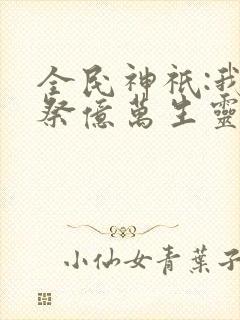 全民神祇:我
祭億萬生靈
小仙女青葉子